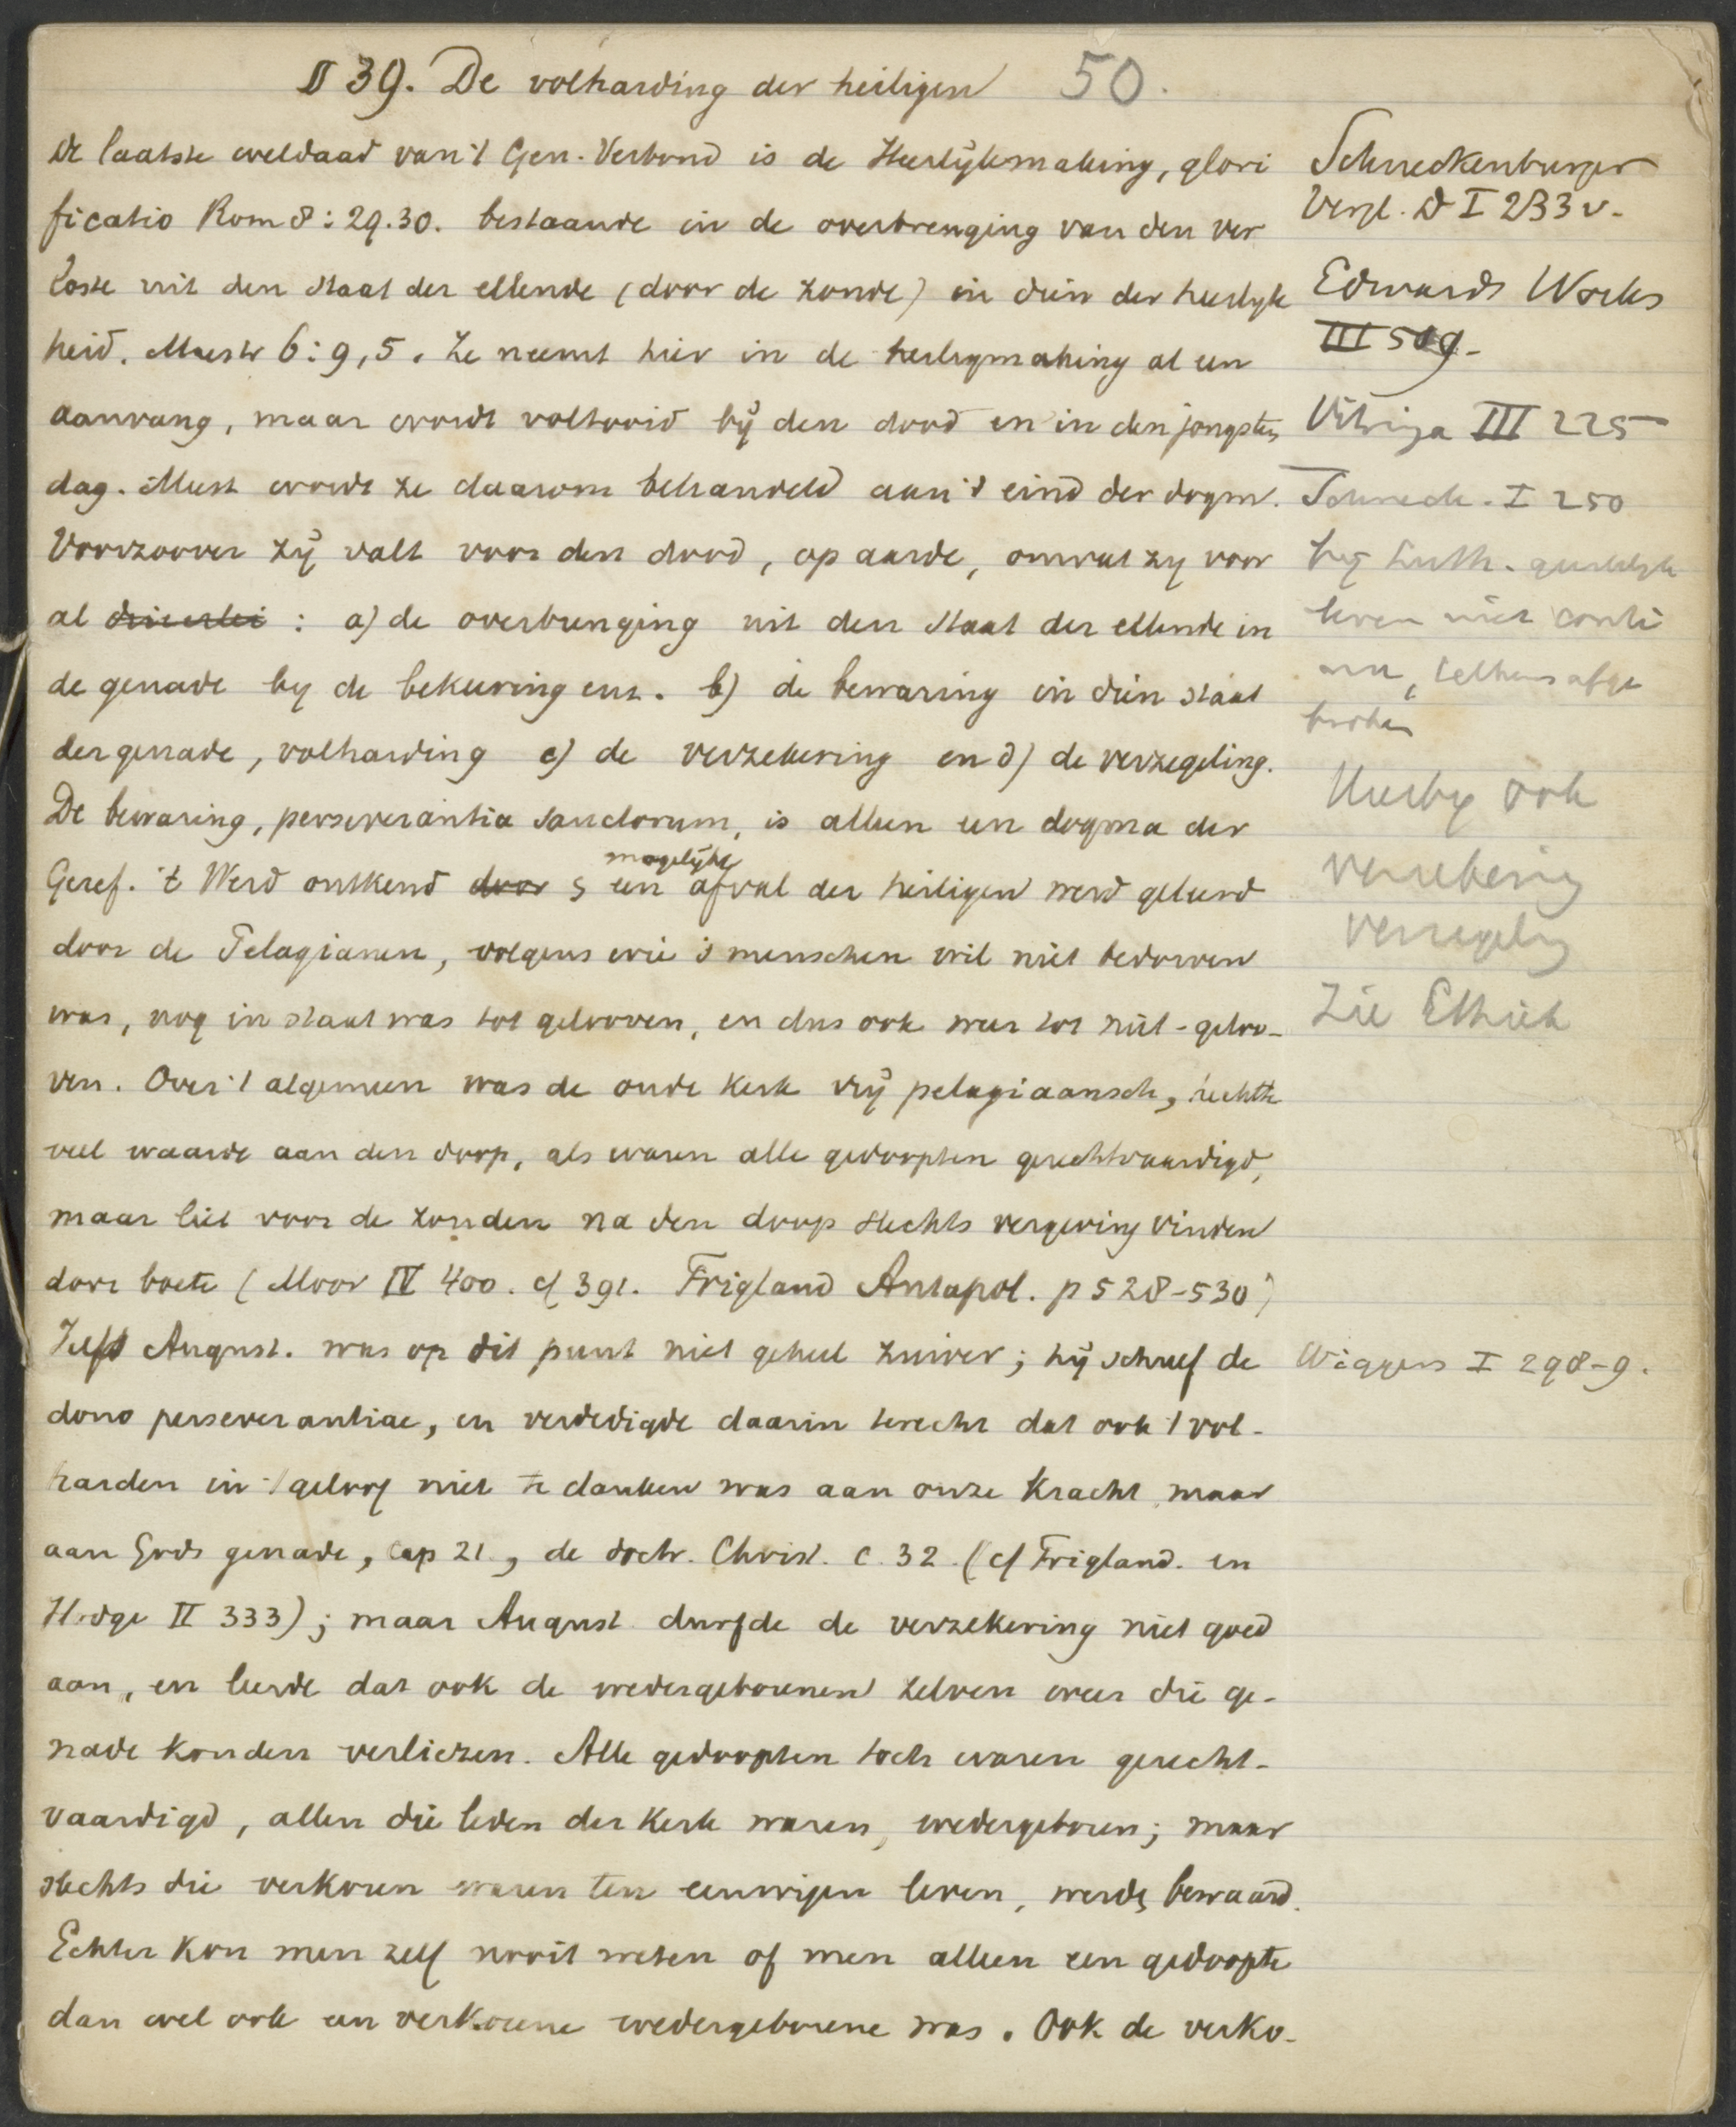 § 39. De volharding der heiligen 50.
De laatste weldaad van 't Gen. Verbond is de Heerlijkmaking, glori
ficatio Rom 8:29.30. bestaande in de overbrenging van den ver
loste uit den staat der ellende (door de zonde) in dien der heerlyk
heid. Mastr 6:9,5. Ze neemt hier in de heiligmaking al een
aanvang, maar wordt voltooid bij den dood en in den jongsten
dag. Meest wordt ze daarom behandeld aan 't eind der dogm.
Voorzoover zij valt voor den dood, op aarde, omvat zij voor
al drieerlei : a) de overbrenging uit den staat der ellende in
de genade by de bekeering enz. b) de bewaring in dien staat
der genade, volharding c) de verzekering en d) de verzegeling.
De bewaring, perseverantia sanctorum, is alleen een dogma der
mogelijke
Geref. 't Werd ontkend door & een afval der heiligen werd geleerd
door de Pelagianen, volgens wie 's menschen wil niet bedorven
was, nog in staat was tot gelooven, en dus ook weer tot niet-geloo-
ven. Over 't algemeen was de oude Kerk vrij pelagiaansch, hechtte
veel waarde aan den doop, als waren alle gedoopten gerechtvaardigd,
maar liet voor de zonden na den doop slechts vergeving vinden
door boete (Moor IV 400. cf 391. Trigland Antapol. p 528-530)
Zelfs August. was op dit punt niet geheel zuiver; hij schreef de
dono perseverantiae, en verdedigde daarin terecht dat ook 't vol-
harden in 't geloof niet te danken was aan onze Kracht maar
aan Gods genade, cap 21., de doctr. Christ. c. 32. (cf Trigland. en
Hodge II 333); maar August. durfde de verzekering niet goed
aan, en leerde dat ook de wedergeborenen zelven weer die ge-
nade konden verliezen. Alle gedoopten toch waren gerecht-
vaardigd, allen die leden der Kerk waren, wedergeboren; maar
slechts die verkoren waren ten eeuwigen leven, werden bewaard.
Echter kon men zelf nooit weten of men alleen een gedoopte
dan wel ook een verkorene wedergeborene was. Ook de verko-
Schneckenburger
Vergl. D I 233 v.
Edwards Works
III 509-
Vitringa III 225
Schneck. I 250
bij Luth. geestelijk
leven niet conti
nu, telkens afge
broken
Hierbij ook
verzekering
verzegeling
Zie Ethiek
Wiggers I 298-9.